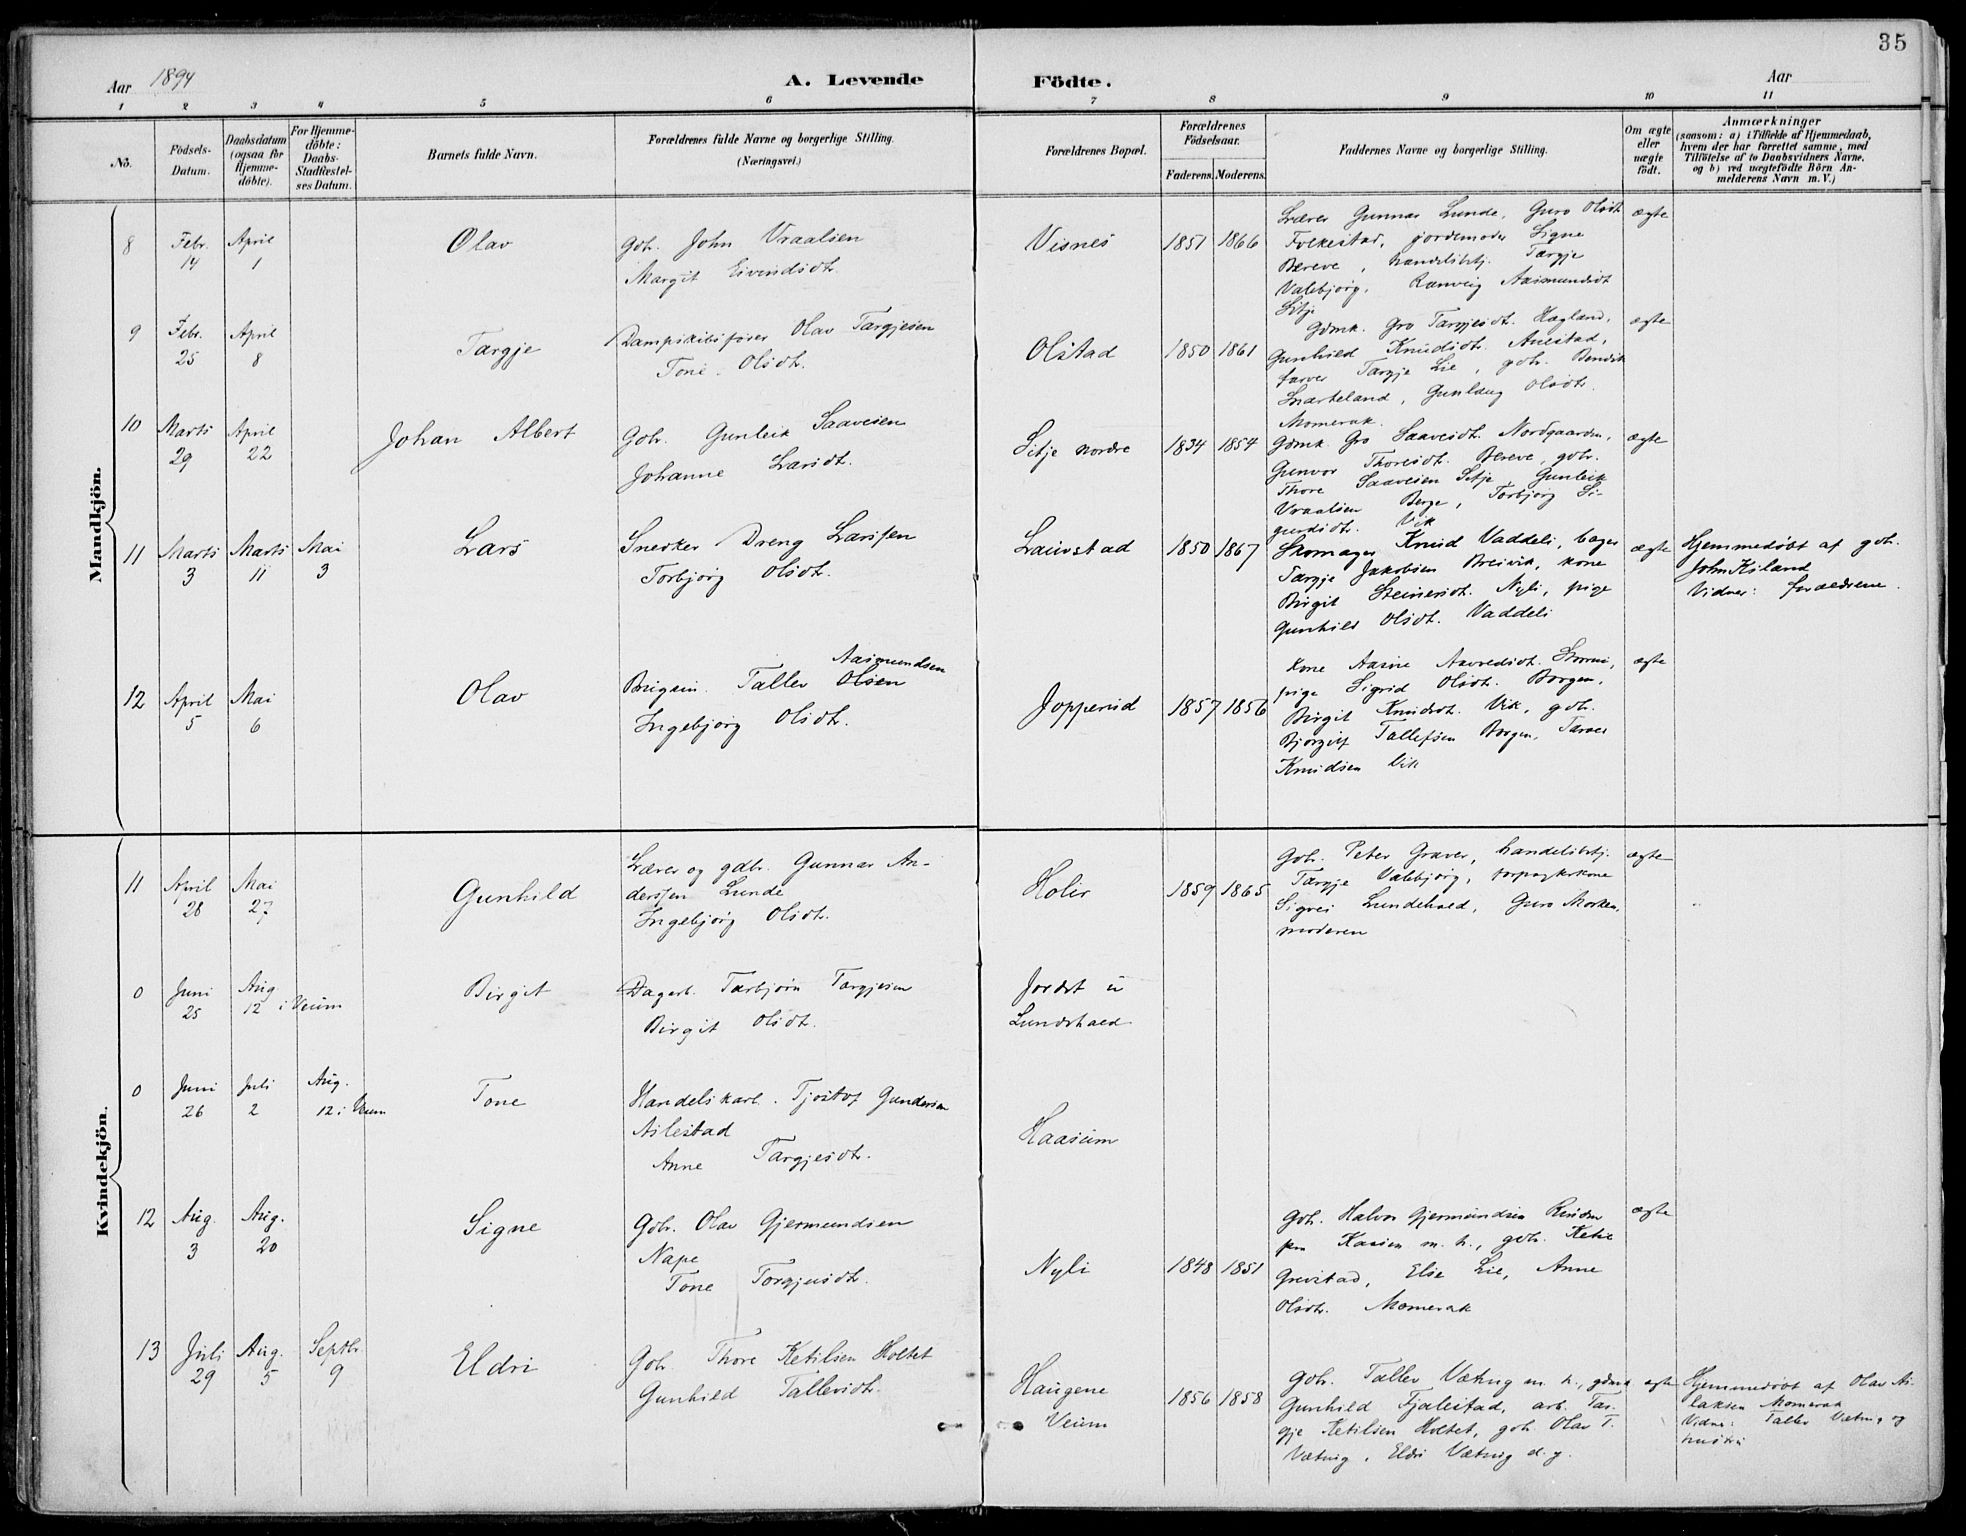 35
Aar 1894
A. Levende Födte.
Aar
1 2 3 4 5 6 7 8 9 10 11
No.
Födsels-Datum.
Daabsdatum (ogsaa for Hjemmedöbte).
For Hjemmedöbte: Daabs-Stadfæstelses Datum.
Barnets fulde Navn.
Forældrenes fulde Navne og borgerlige Stilling.
(Næringsvei.)
Forældrenes Bopæl.
Forældrenes Födselsaar.
Faderens. Moderens.
Faddernes Navne og borgerlige Stilling.
Om ægte eller uægte födt.
Anmærkninger
(saasom: a) i Tilfælde af Hjemmedaab, hvem der har forrettet samme, med Tilföielse af to Daabsvidners Navne, og b) ved uægtefödte Börn Anmelderens Navn m. V.)
Mandkjön.
8 Febr. 14 April 1 Olav
Gbr. John Vraalsen
Margit Eivindsdtr.
Visnes 1851 1866
Lærer Gunnar Lunde, Guro Olsdt
Folkestad, jordemoder Signe
Bereve, handelsbtj. Targje
Valebjørg, Ranveig Aasmundsdt
Sitje
ægte
9 Febr. 25 April 8 Targje
Dampskibsfører Olav Targjesen
Tone Olsdtr.
Olstad 1850 1861
Gdmk. Gro Targjesdt. Hagland,
Gunhild Knudsdtr.
farver Targje Lie, gbr. Bendik
Snarteland, Gunlaug Olsdtr.
Momerak.
ægte
10 Marts 29 April 22 Johan Albert
Gbr. Gunleik Saavesen
Johanne Larsdt.
Sitje nordre 1834 1854
Gdmk. Gro Saavesdt. Nordgaarden,
Gunvor Thoresdt. Bereve, gbr.
Thore Saavesen Sitje Gunleik
Vraalsen Berge, Torbjørg Si-
gurdsdtr. Vik
ægte
11 Marts 3 Marts 11 Mai 3 Lars
Snedker Dreng Larssen
Torbjørg Olsdtr.
Lauvstad 1850 1867
Skomager Knud Vaddeli, bager
Targje Jakobsen Breivik, kone
Birgit Steinersdt. Nyli, pige
Gunhild Olsdt. Vaddeli
ægte
Hjemmedøbt af gbr.
John Kiland
Vidner: forældrene.
12 April 5 Mai 6 Olav
Aasmundsen
Brugsm. Tallev Olsen
Ingebjørg Olsdtr.
Jopperud 1857 1856
Kone Aasne
pige Sigrid Olsdt. Borgen,
Birgit Knudsdt. Vik, gbr.
Bjorgulf Tallefsen Borgen, Tarver
Knudsen Vik
ægte
Kvindekjön.
11 April 28 Mai 27 Gunhild
Lærer og gdbr. Gunnar An-
derssen Lunde
Ingebjørg Olsdtr.
Holir 1859 1865
Gbr. Peter Graver, handelsbtj.
Targje Valebjørg,
Signe Lundehaed, Guro Morken,
moderen
ægte
0 Juni 25 Aug. 12 i Veum Birgit
Dagarb. Tarbjørn Targjesen
Birgit Olsdt.
Jordet u
Lundehaed
0 Juni 26 Juli 2 Aug. 12 i Veum Tone
Handelskarl. Tjostov Gundersen
Aslestad
Anne Targjesdtr.
Haasum
12 Aug. 3 Aug. 20 Signe
Gbr. Olav Gjermundsen
Nape
Tone Torgjusdtr.
Nyli 1848 1851
Gbr. Halvor Gjermundsen
Kaasen m. h., gbr. Ketil
Grevstad, Else Lie, Anne
Olsdtr. Momerak
ægte
13 Juli 29 Aug. 5 Septbr. 9 Eldri
Gbr. Thore Ketilsen Holtet
Gunhild Tallevsdtr.
Haugene
Veum
1856 1858
Gbr. Tallev Vætnug m. h., gdmk
Gunhild Fjalestad, arb. Tar-
gje Ketilsen Holtet, gbr. Olav T.
Vætnug, Eldri Vætnug d. y.
ægte
Hjemmedøbt af Olav As-
laksen Momerak
Vidner: Tallev Vætnug og
hustru